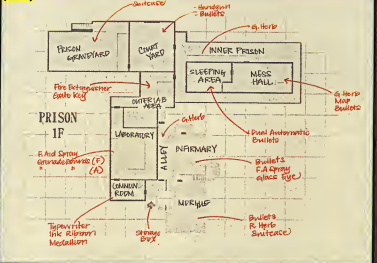 Suitcase
Handgun
Bullets
G. Herb
PRISON
GRAVEYARD
COURT
YARD
INNER PRISON
SLEEPING
AREA
MESS
HALL
G. Herb
Map
Bullets
Fire Extinguisher
Gate Key
OUTER LAB
AREA
PRISON
1F
LABORATORY
G. Herb
Dual Automatic
Bullets
ALLEY
INFIRMARY
F. Aid Spray
Grenade Rounds (F)
" " (A)
Bullets
F.A Spray
Glass Eye
COMMUN.
ROOM
MORGUE
Typewriter
Ink Ribbon
Medallion
Storage
Box
Bullets
R. Herb
Suitcase